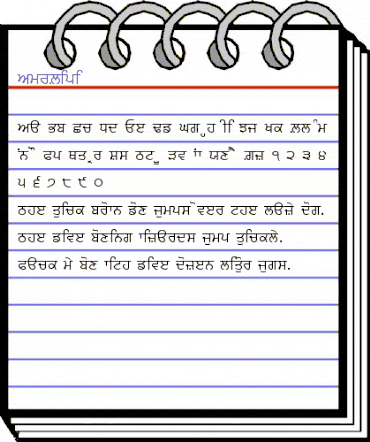 ਅਮਰਲਿਪਿ
ਅੳ ਭਬ ਛਚ ਧਦ ਓੲ ਢਡ ਘਗ ੍ਹਹ ੀਿ ਝਜ ਖਕ ਲ਼ਲ ੰਮ
ਂਨ ੌੋ ਫਪ ਥਤ ੍ਰਰ ਸ਼ਸ ਠਟ ੂੁ ੜਵ ਾਂ ਯਣ ੈੇ ਗ਼ਜ਼ ੧ ੨ ੩ ੪
੫ ੬ ੭ ੮ ੯ ੦
ਠਹੲ ਤੁਚਿਕ ਬਰੋਾਨ ਡੋਣ ਜੁਮਪਸ ੋਵੲਰ ਟਹੲ ਲੳਜ਼ੇ ਦੋਗ.
ਠਹੲ ਡਵਿੲ ਬੋਣਨਿਗ ਾਜ਼ਿੳਰਦਸ ਜੁਮਪ ਤੁਚਿਕਲੇ.
ਫੳਚਕ ਮੇ ਬੋਣ ਾਟਿਹ ਡਵਿੲ ਦੋਜ਼ੲਨ ਲਤਿੁੋਰ ਜੁਗਸ.